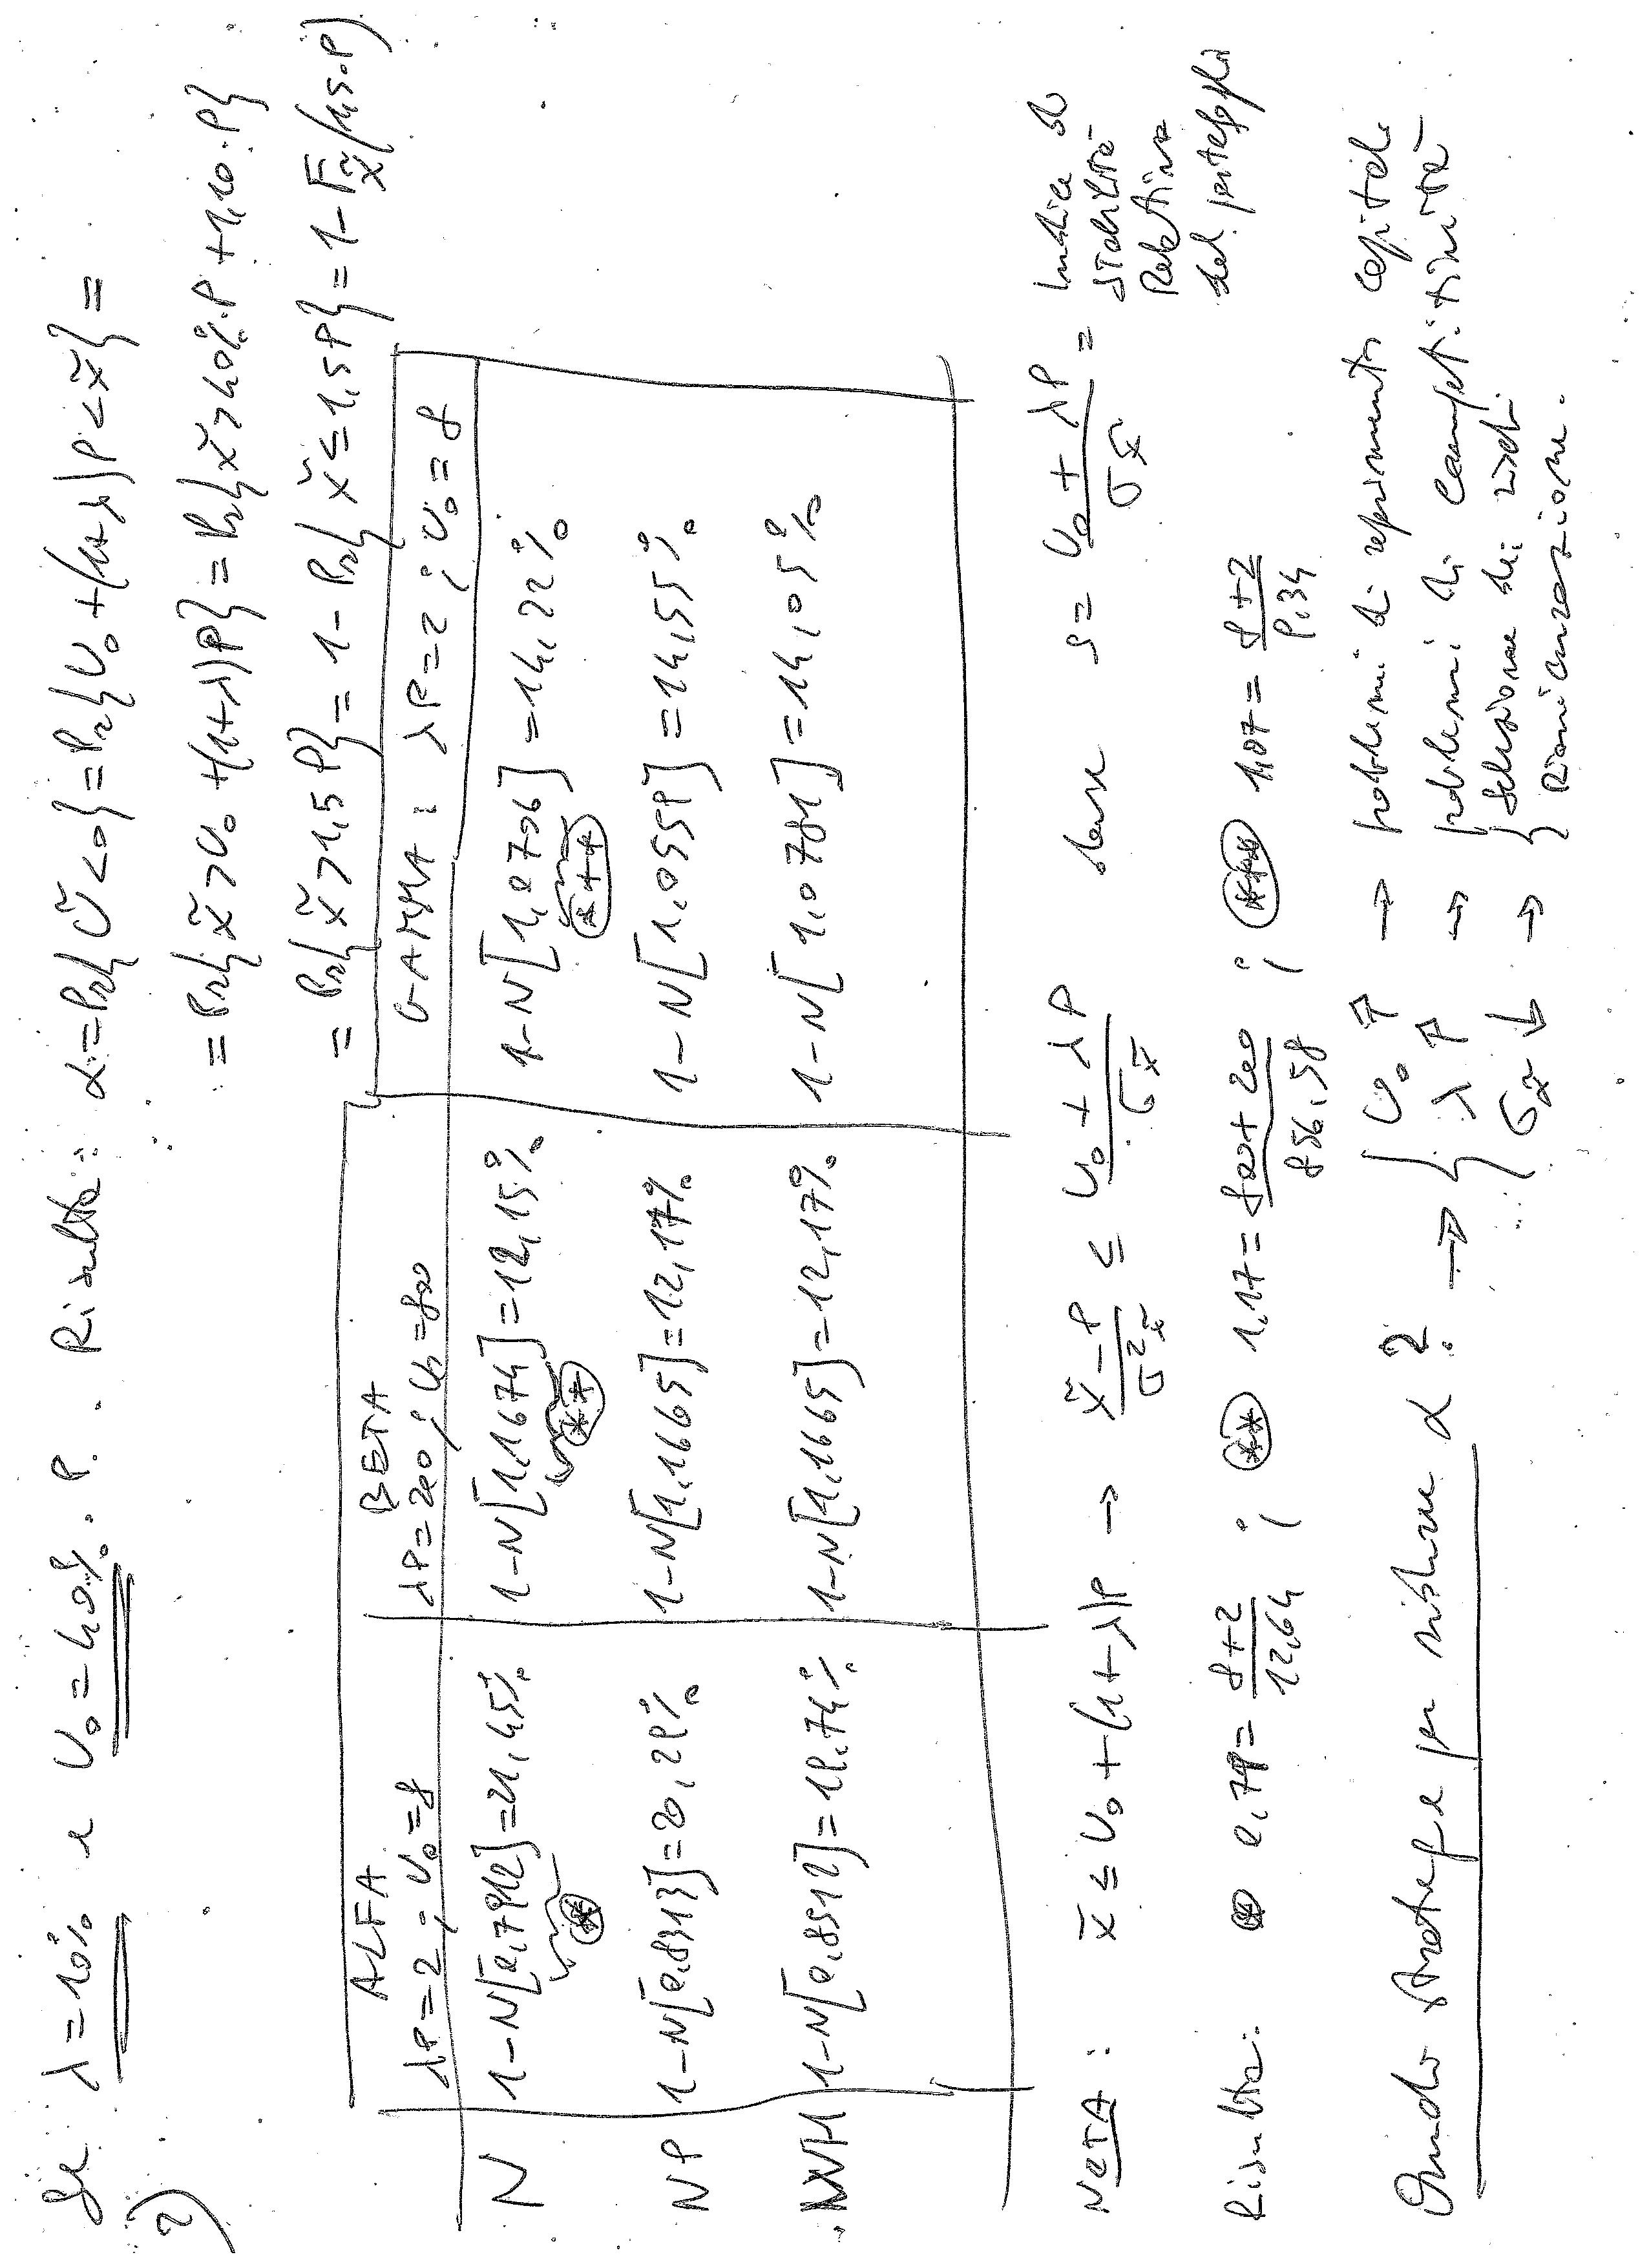 Se λ=10% e U₀=40%·P. Risulta: α=Pr{Ũ<0}=Pr{U₀+(1+λ)P<x̃}=
2)
=Pr{x̃>U₀+(1+λ)P}=Pr{x̃>40%·P+1,10·P}
=Pr{x̃>1,5P}=1-Pr{x̃≤1,5P}=1-Fx̃(1,5·P)
ALFA BETA GAMMA: λP=2; U₀=8
λP=2; U₀=8 λP=200; U₀=800
N 1-N[0,7912]=21,45% 1-N[1,1674]=12,15% 1-N[1,0706]=14,22%
(*) (**) (***)
NP 1-N[0,8313]=20,29% 1-N[1,1665]=12,17% 1-N[1,0559]=14,55%
WH 1-N[0,8512]=19,74% 1-N[1,1665]=12,17% 1-N[1,0781]=14,05%
NOTA: x̃≤U₀+(1+λ)P → (x̃-P)/σ²x̃ ≤ (U₀+λP)/σx̃ dove s=(U₀+λP)/σx̃= Indice di
stabilità
Relativa
del portafogli
Risulta: (*) 0,79=(8+2)/12,64; (**) 1,17=(800+200)/856,58; (***) 1,07=(8+2)/9,34
Quando strategie per ridurre α? → { U₀ ↑ → problemi di reperimento capitale
λ ↑ → problemi di competitività
σx̃ ↓ → { selezione dei rischi
Riassicurazione.